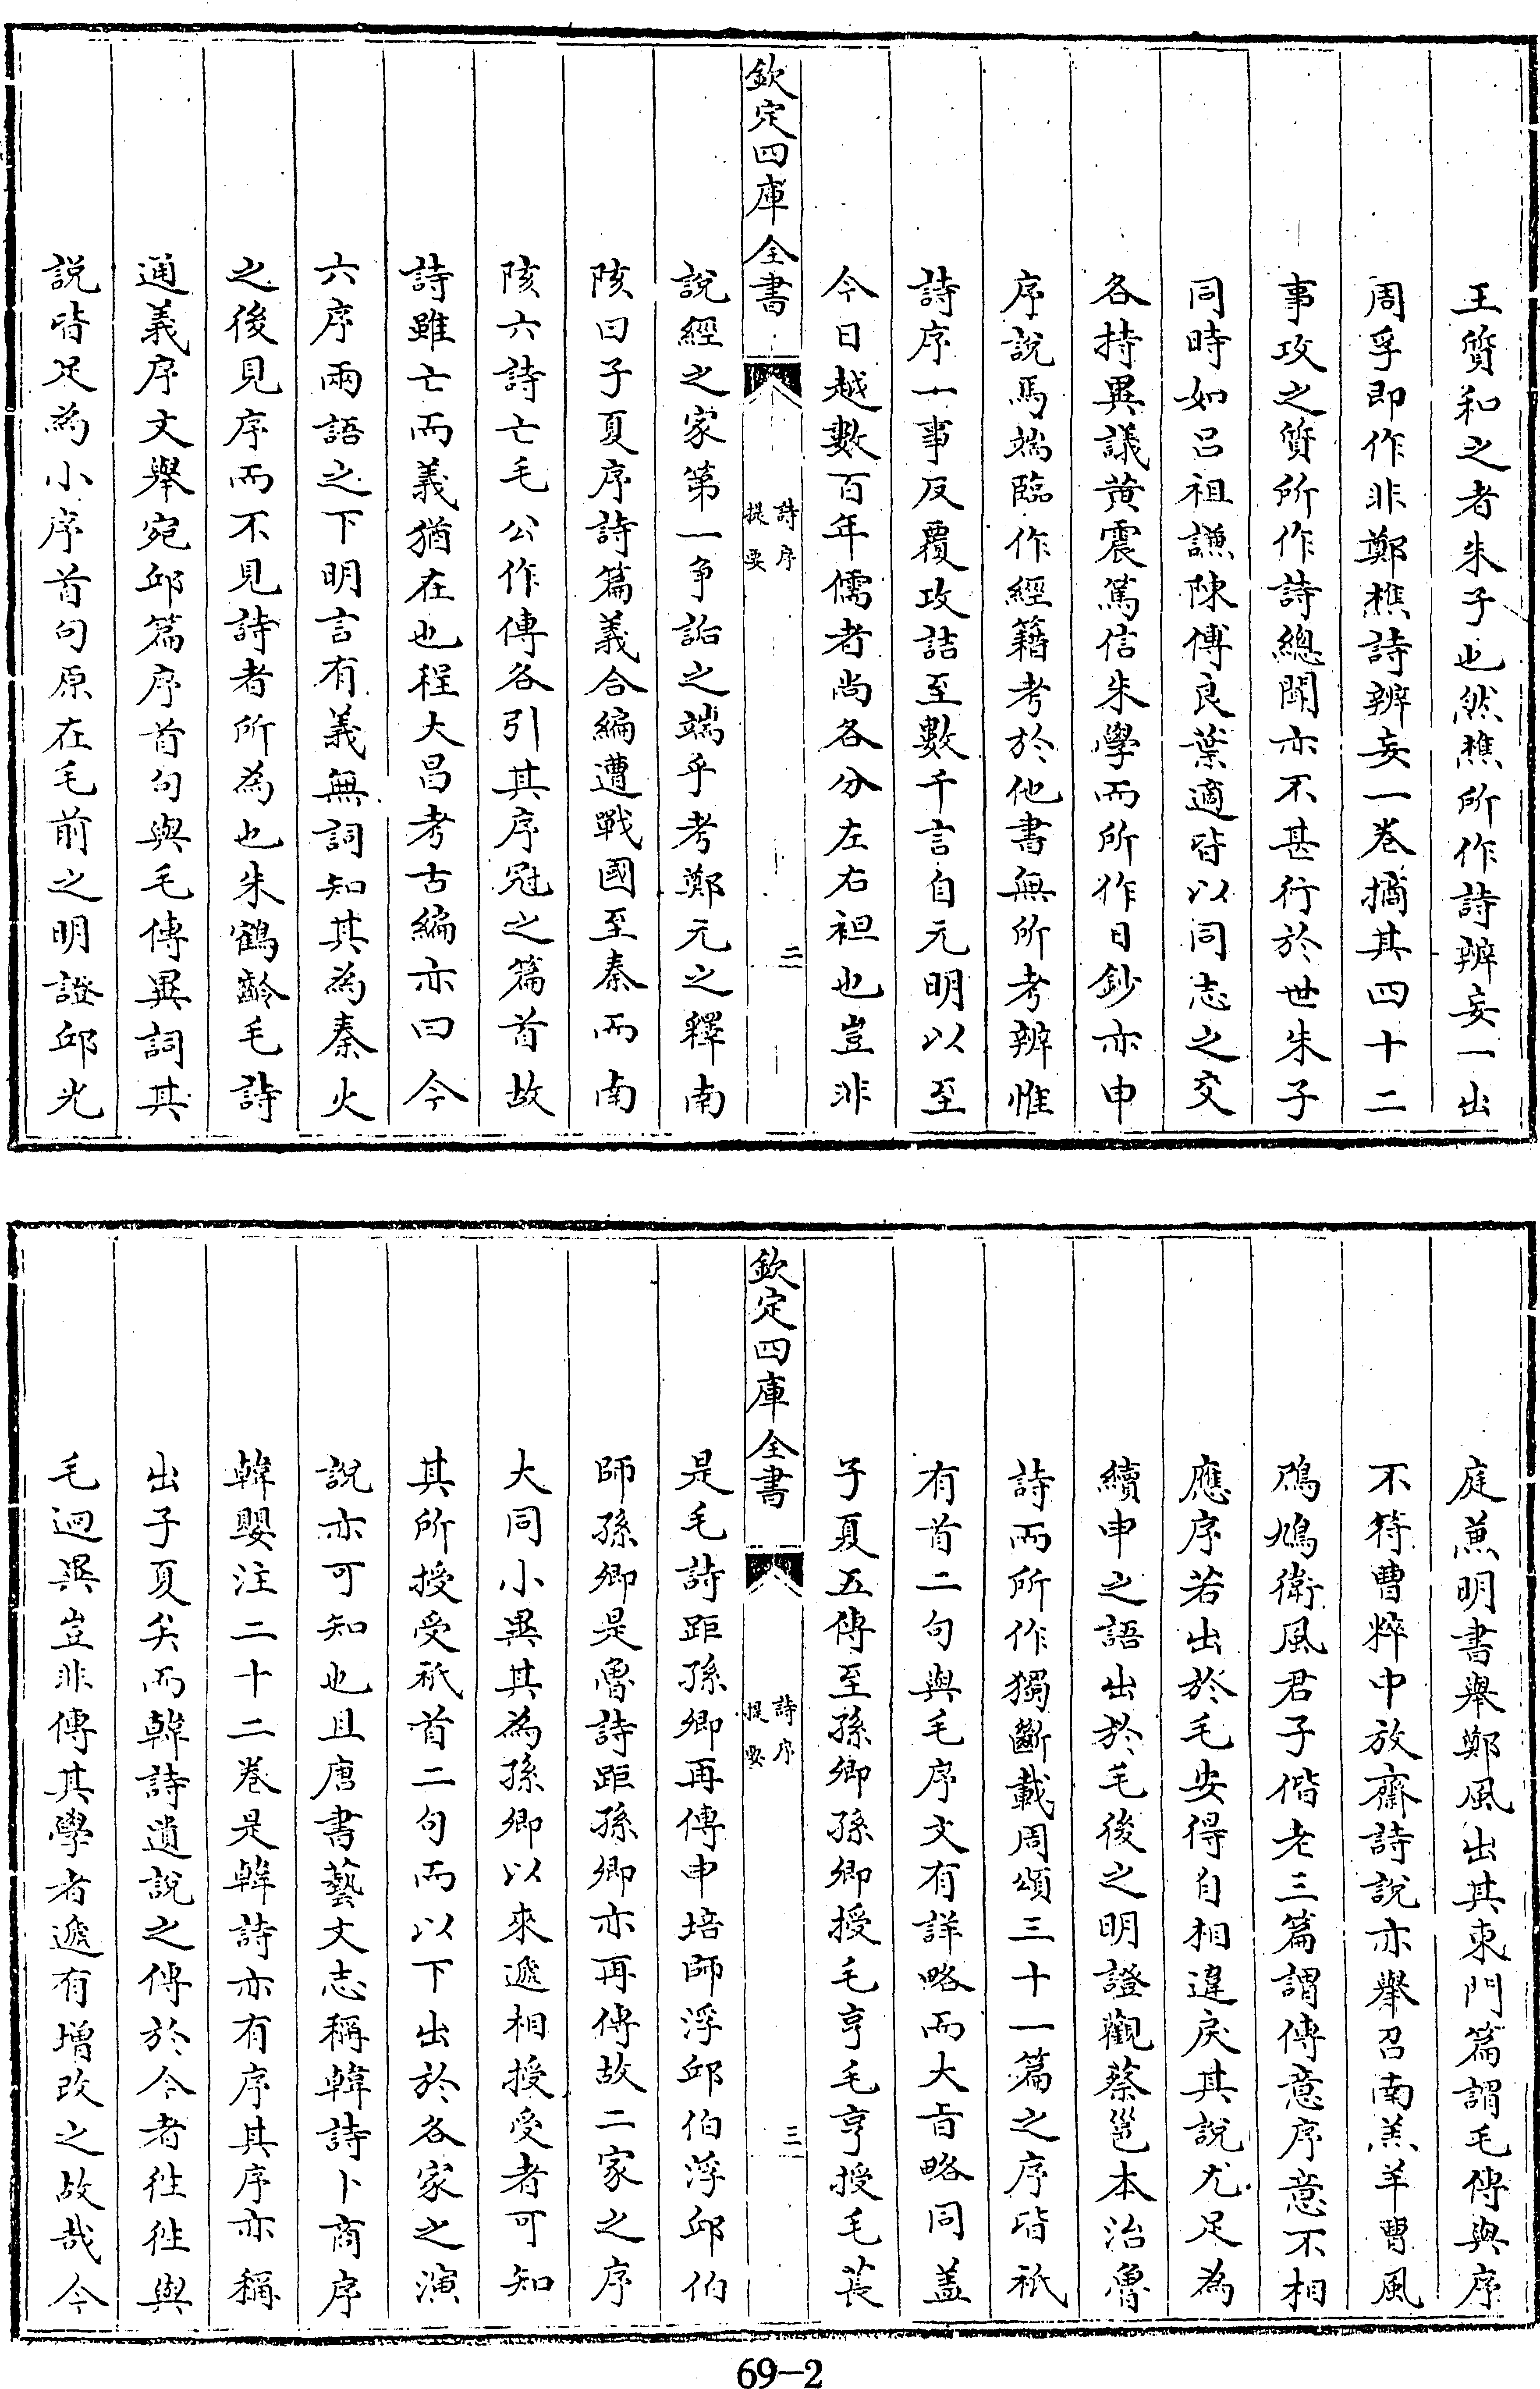 王質和之者朱子也然樵所作詩辨妄一出
周孚即作非鄭樵詩辨妄一卷摘其四十二
事攻之質所作詩總聞亦不甚行於世朱子
同時如呂祖謙陳傅良葉適皆以同志之交
各持異議黄震篤信朱學而所作日鈔亦申
序說馬端臨作經籍考於他書無所考辨惟
詩序一事反覆攻詰至數千言自元明以至
今日越數百年儒者尚各分左右袒也豈非
欽定四庫全書
詩序
提要
二
說經之家第一争詬之端乎考鄭元之釋南
陔曰子夏序詩篇義合編遭戰國至秦而南
陔六詩亡毛公作傳各引其序冠之篇首故
詩雖亡而義猶在也程大昌考古編亦曰今
六序兩語之下明言有義無詞知其為秦火
之後見序而不見詩者所為也朱鶴齡毛詩
通義序文舉宛邱篇序首句與毛傳異詞其
說皆足為小序首句原在毛前之明證邱光
庭兼明書舉鄭風出其東門篇謂毛傳與序
不符曹粹中放齋詩說亦舉召南羔羊曹風
鳲鳩衛風君子偕老三篇謂傳意序意不相
應序若出於毛安得自相違戾其說尤足為
續申之語出於毛後之明證觀蔡邕本治魯
詩而所作獨斷載周頌三十一篇之序皆祇
有首二句與毛序文有詳略而大旨略同蓋
子夏五傳至孫卿孫卿授毛亨毛亨授毛萇
欽定四庫全書
詩序
提要
三
是毛詩距孫卿再傳申培師浮邱伯浮邱伯
師孫卿是魯詩距孫卿亦再傳故二家之序
大同小異其為孫卿以來遞相授受者可知
其所授受祇首二句而以下出於各家之演
說亦可知也且唐書藝文志稱韓詩卜商序
韓嬰注二十二卷是韓詩亦有序其序亦稱
出子夏矣而韓詩遺說之傳於今者往往與
毛迥異豈非傳其學者遞有增改之故哉今
69-2